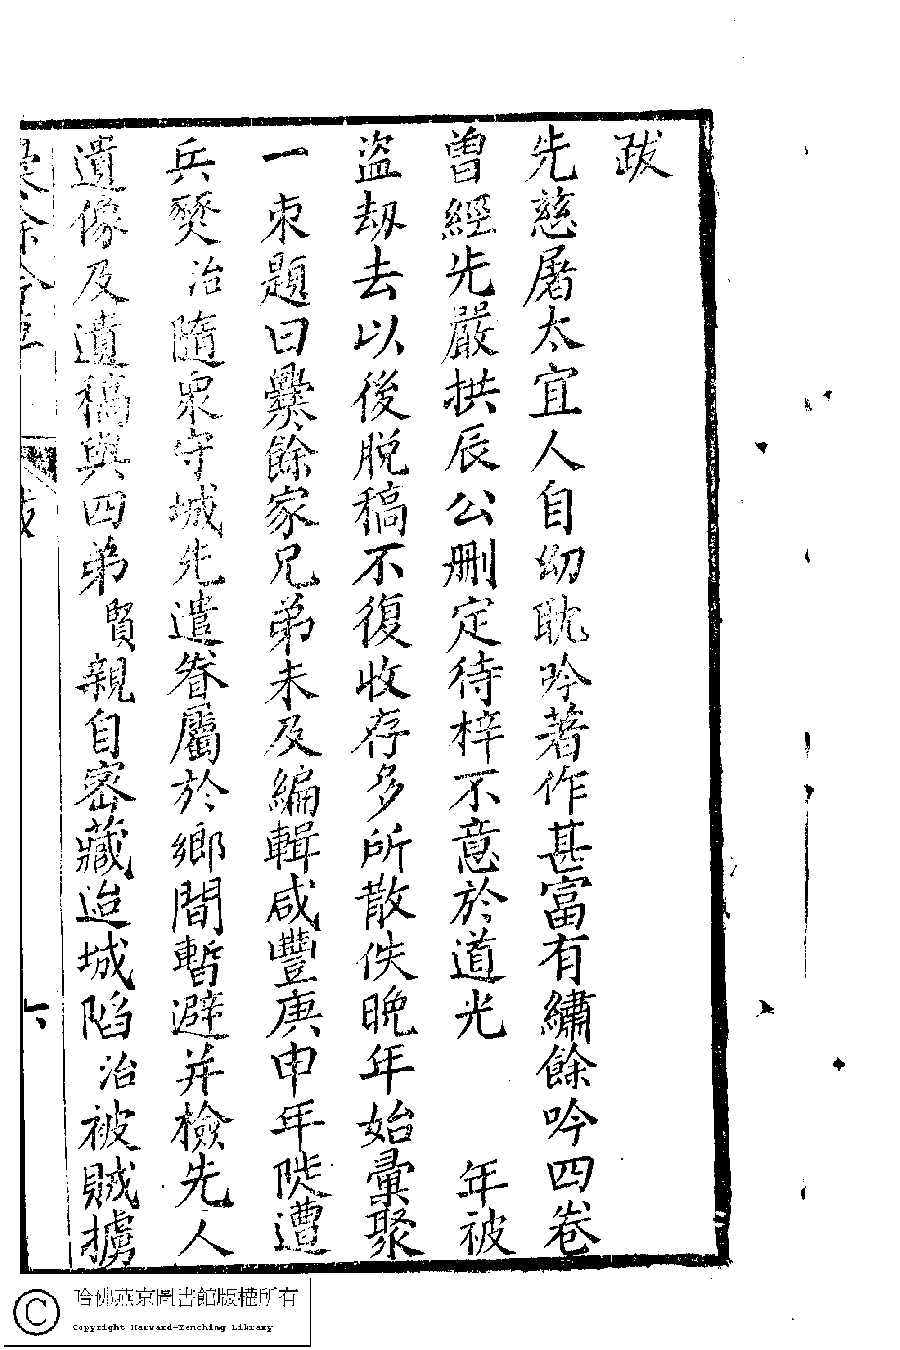 跋
先慈屠太宜人自幼耽吟著作甚富有繡餘吟四卷
曾經先嚴拱辰公刪定待梓不意於道光　　年被
盜刼去以後脫稿不復收存多所散佚晚年始彙聚
一束題曰爨餘家兄弟未及編輯咸豐庚申年陡遭
兵燹治隨衆守城先遣眷屬於鄉間暫避并檢先人
遺像及遺稿與四弟賢親自密藏迨城陷治被賊擄
跋
六
哈佛燕京圖書館版權所有
Copyright Harvard-Yenching Library